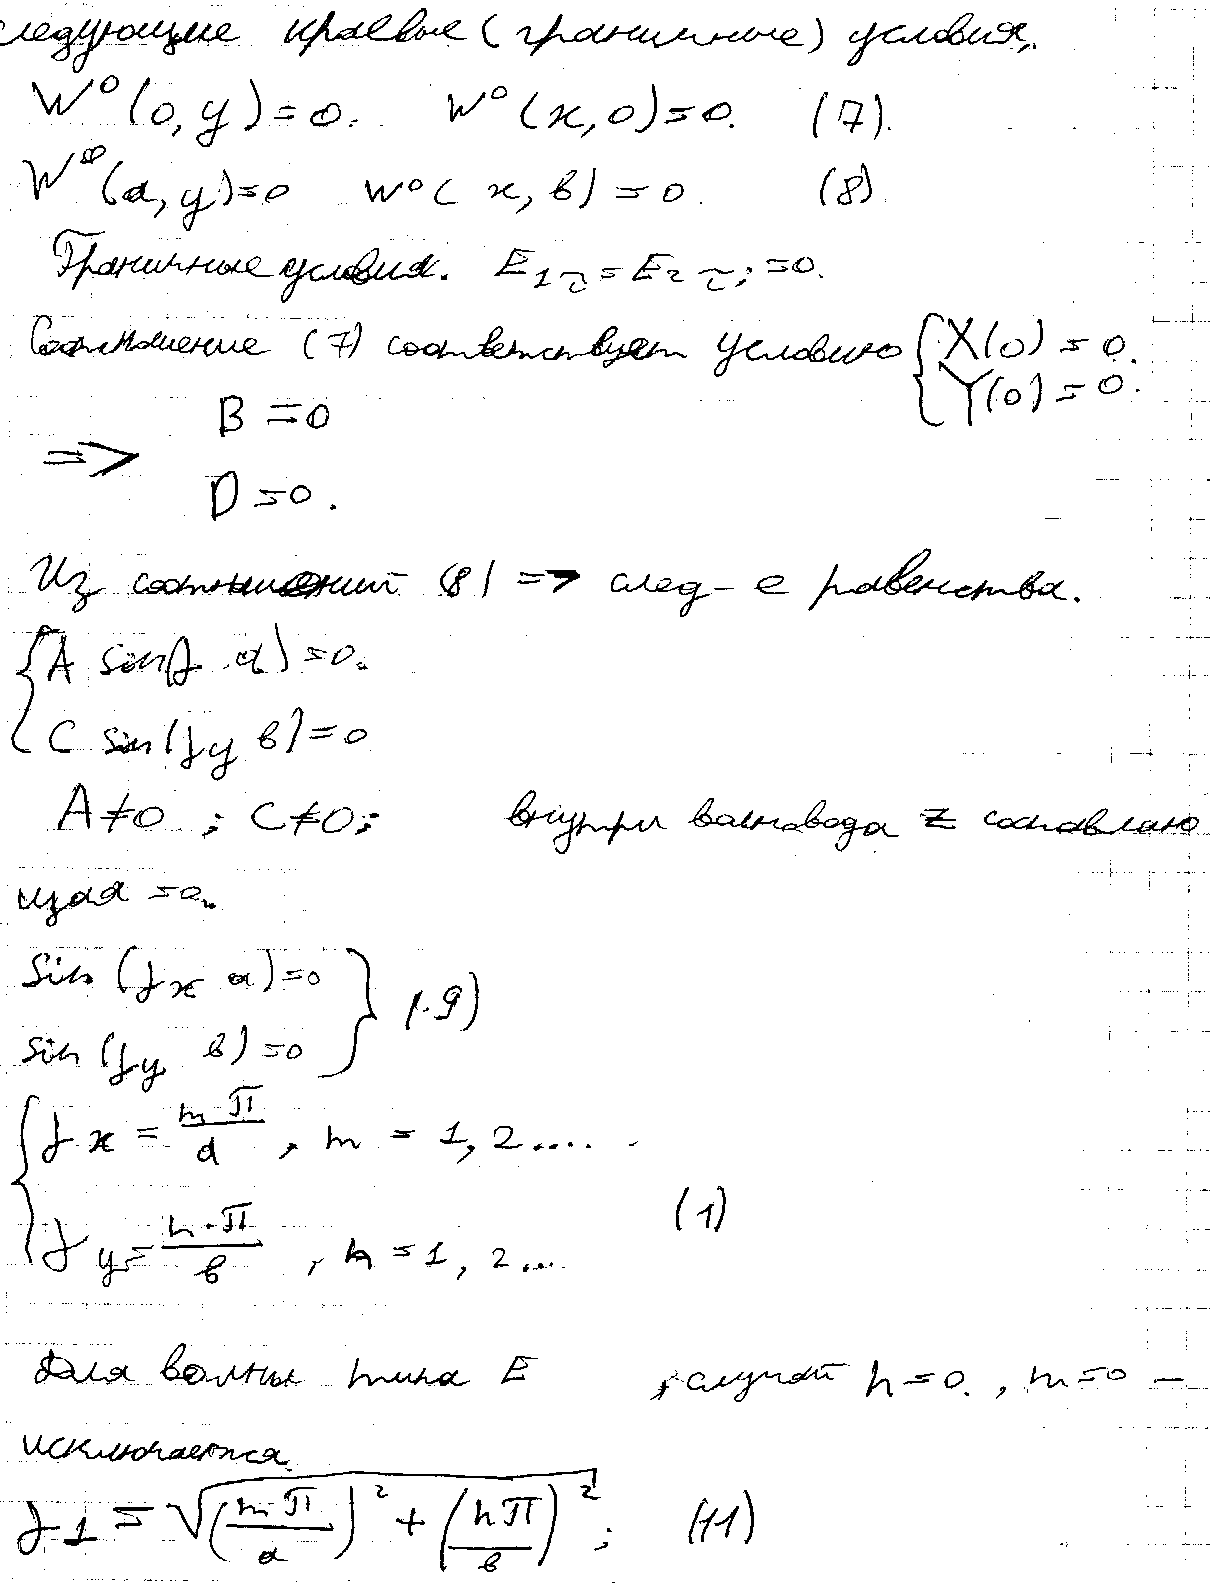 следующие краевые (граничные) условия,
W⁰(0,y)=0. W⁰(x,0)=0. (7).
W⁰(a,y)=0 W⁰(x,в)=0. (8).
Граничные условия. E₁τ=E₂τ;=0.
Соотношение (7) соответствует условию {X(0)=0.
Y(0)=0.
B=0
=>
D=0.
Из соотношений (8) => след-е равенства.
{A sin(γ a)=0.
C sin(γy в)=0
A≠0 ; C≠0; внутри волновода Z составляю
щая =0.
sin (γx a)=0
sin (γy в)=0 } (.9)
{γx = mπ/a , m = 1,2....
γy = n·π/в , n =1,2... (1)
Для волны типа E , случай n=0. , m=0 –
исключается.
γ1 = √((mπ/a)²+(nπ/в)²; (11)